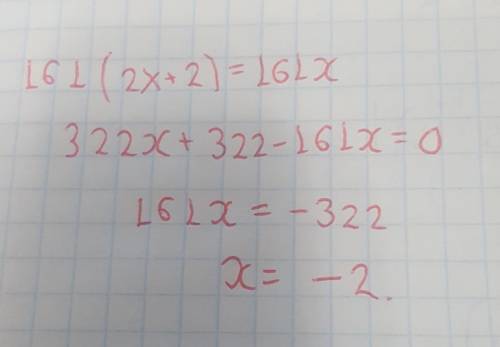 161(2x+2)=161x
322x+322-161x=0
161x=-322
x=-2.